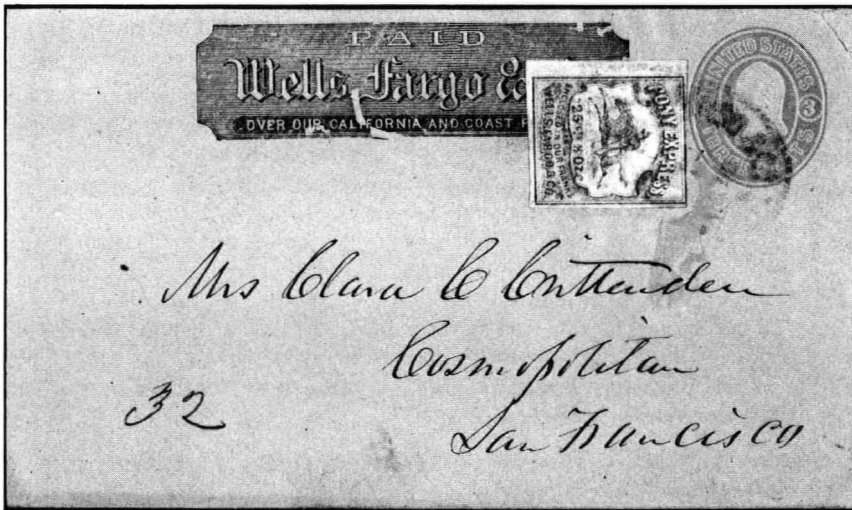 PAID
Wells Fargo &
OVER OUR CALIFORNIA AND COAST
PONY EXPRESS
25 cts ½ OZ.
ENCLOSED IN OUR FRANKS
WELLS, FARGO & CO.
UNITED STATES
3
THREE CENTS
Mrs Clara C Crittenden
Cosmopolitan
32
San Francisco